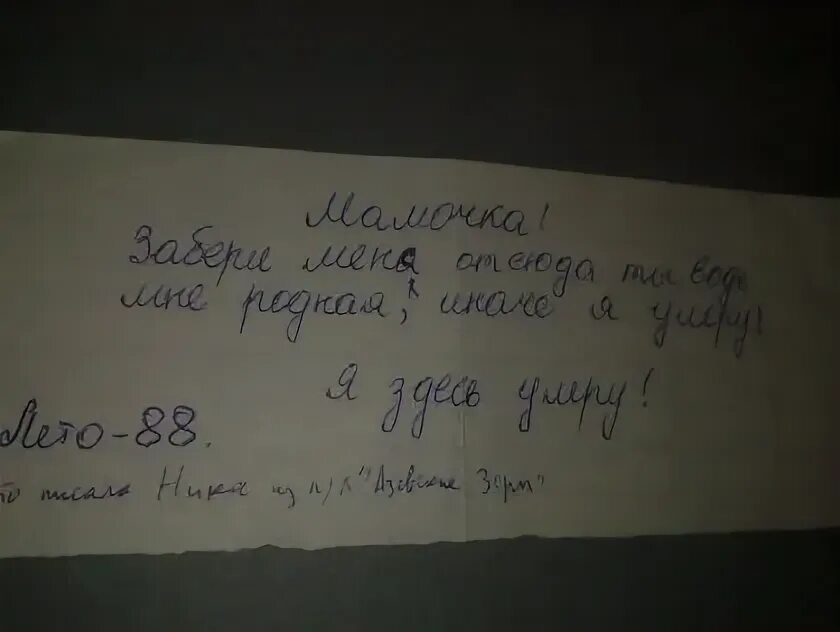 Мамочка!
Забери меня отсюда ты ведь
мне родная, иначе я умру!
Я здесь умру!
Лето-88.
то писала Ника из п/л "Азовские Зори"